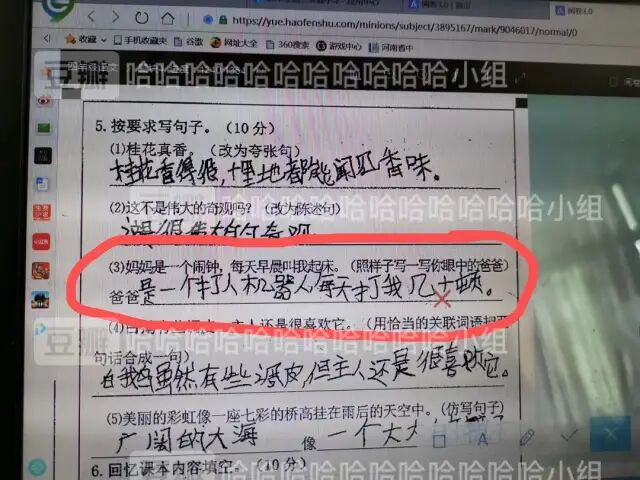 https://yue.haofenshu.com/minions/subject/3895167/mark/9046017/normal/0
收藏 谷歌 网址大全 360搜索 游戏中心 河南香中
豆瓣 哈哈哈哈哈哈哈哈哈哈小组
5. 按要求写句子。（10 分）
(1)桂花真香。（改为夸张句）
桂花香得很，十里地都能闻见香味。
(2)这不是伟大的奇观吗？（改为陈述句）
(3)妈妈是一个闹钟，每天早晨叫我起床。（照样子写一写你眼中的爸爸）
爸爸是一个打人机器人，每天打我几十顿。
主人还是很喜欢它。（用恰当的关联词语把两
句话合成一句）
虽然有些调皮，但主人还是很喜欢它。
(5)美丽的彩虹像一座七彩的桥高挂在雨后的天空中。（仿写句子）
广阔的大海 像 一个大
6. 回忆课本内容填空。（10 分）